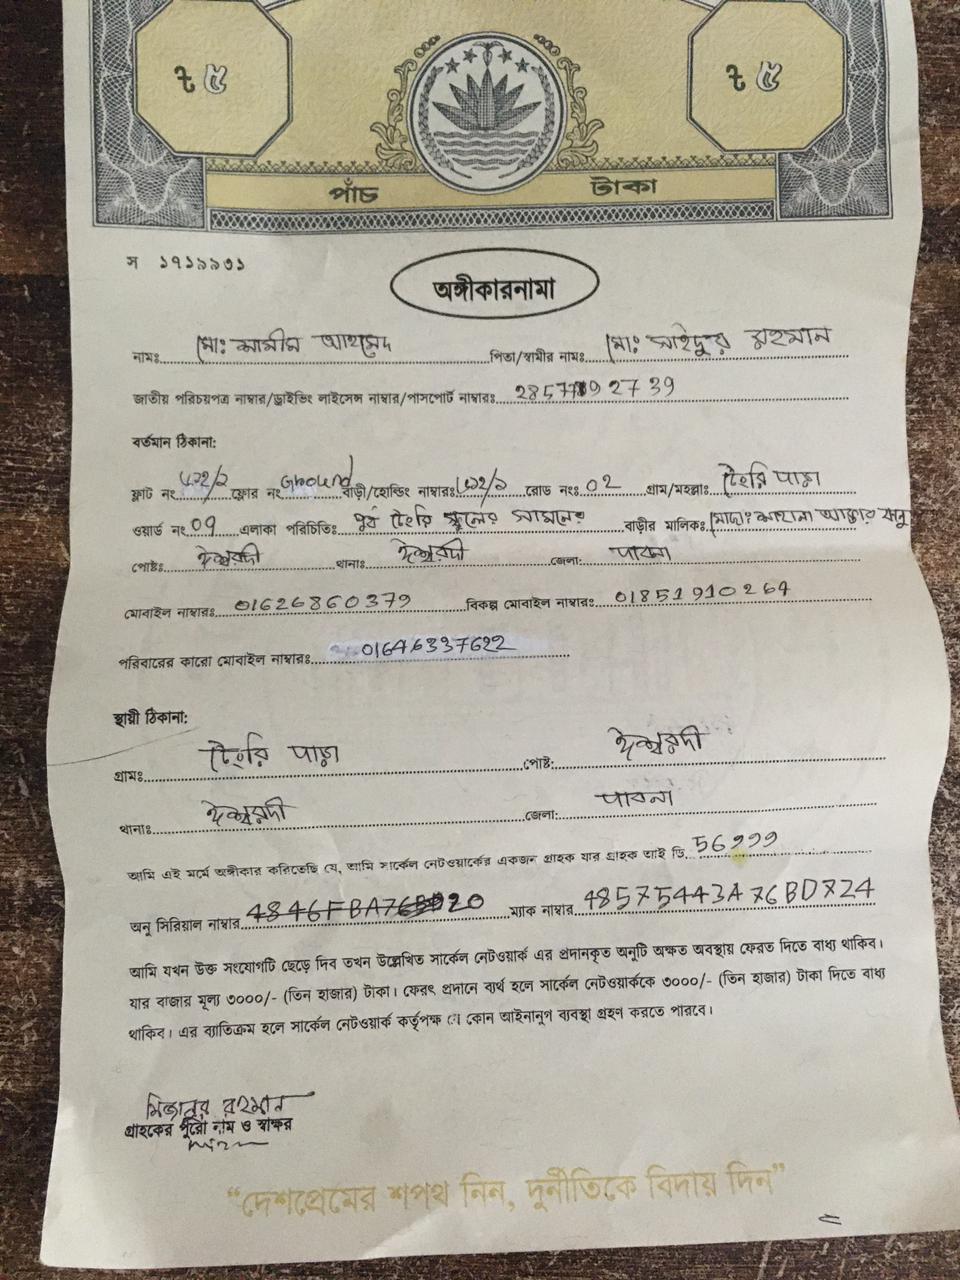 ৳ ৫ ৳ ৫
পাঁচ টাকা
স ১৭১৯৯৩১
অঙ্গীকারনামা
নামঃ মোঃ শামীম আহমেদ পিতা/স্বামীর নামঃ মোঃ সাইদুর রহমান
জাতীয় পরিচয়পত্র নাম্বার/ড্রাইভিং লাইসেন্স নাম্বার/পাসপোর্ট নাম্বারঃ
বর্তমান ঠিকানা:
ফ্লাট নং ফ্লোর নং Ground বাড়ী/হোল্ডিং নাম্বারঃ রোড নংঃ 02 গ্রাম/মহল্লাঃ পাড়া
ওয়ার্ড নং 09 এলাকা পরিচিতিঃ পূর্ব স্কুলের সামনের বাড়ীর মালিকঃ মোছাঃ আক্তার
পোষ্টঃ ঈশ্বরদী থানাঃ ঈশ্বরদী জেলা: পাবনা
মোবাইল নাম্বারঃ 01626860379 বিকল্প মোবাইল নাম্বারঃ 01851910264
পরিবারের কারো মোবাইল নাম্বারঃ 01646337622
স্থায়ী ঠিকানা:
গ্রামঃ পাড়া পোষ্ট: ঈশ্বরদী
থানাঃ ঈশ্বরদী জেলা: পাবনা
আমি এই মর্মে অঙ্গীকার করিতেছি যে, আমি সার্কেল নেটওয়ার্কের একজন গ্রাহক যার গ্রাহক আই ডি. 56999
অনু সিরিয়াল নাম্বার ম্যাক নাম্বার 48575443A76BD724
আমি যখন উক্ত সংযোগটি ছেড়ে দিব তখন উল্লেখিত সার্কেল নেটওয়ার্ক এর প্রদানকৃত অনুটি অক্ষত অবস্থায় ফেরত দিতে বাধ্য থাকিব।
যার বাজার মূল্য ৩০০০/- (তিন হাজার) টাকা। ফেরৎ প্রদানে ব্যর্থ হলে সার্কেল নেটওয়ার্ককে ৩০০০/- (তিন হাজার) টাকা দিতে বাধ্য
থাকিব। এর ব্যাতিক্রম হলে সার্কেল নেটওয়ার্ক কর্তৃপক্ষ যে কোন আইনানুগ ব্যবস্থা গ্রহণ করতে পারবে।
মিজানুর রহমান
গ্রাহকের পুরো নাম ও স্বাক্ষর
“দেশপ্রেমের শপথ নিন, দুর্নীতিকে বিদায় দিন”